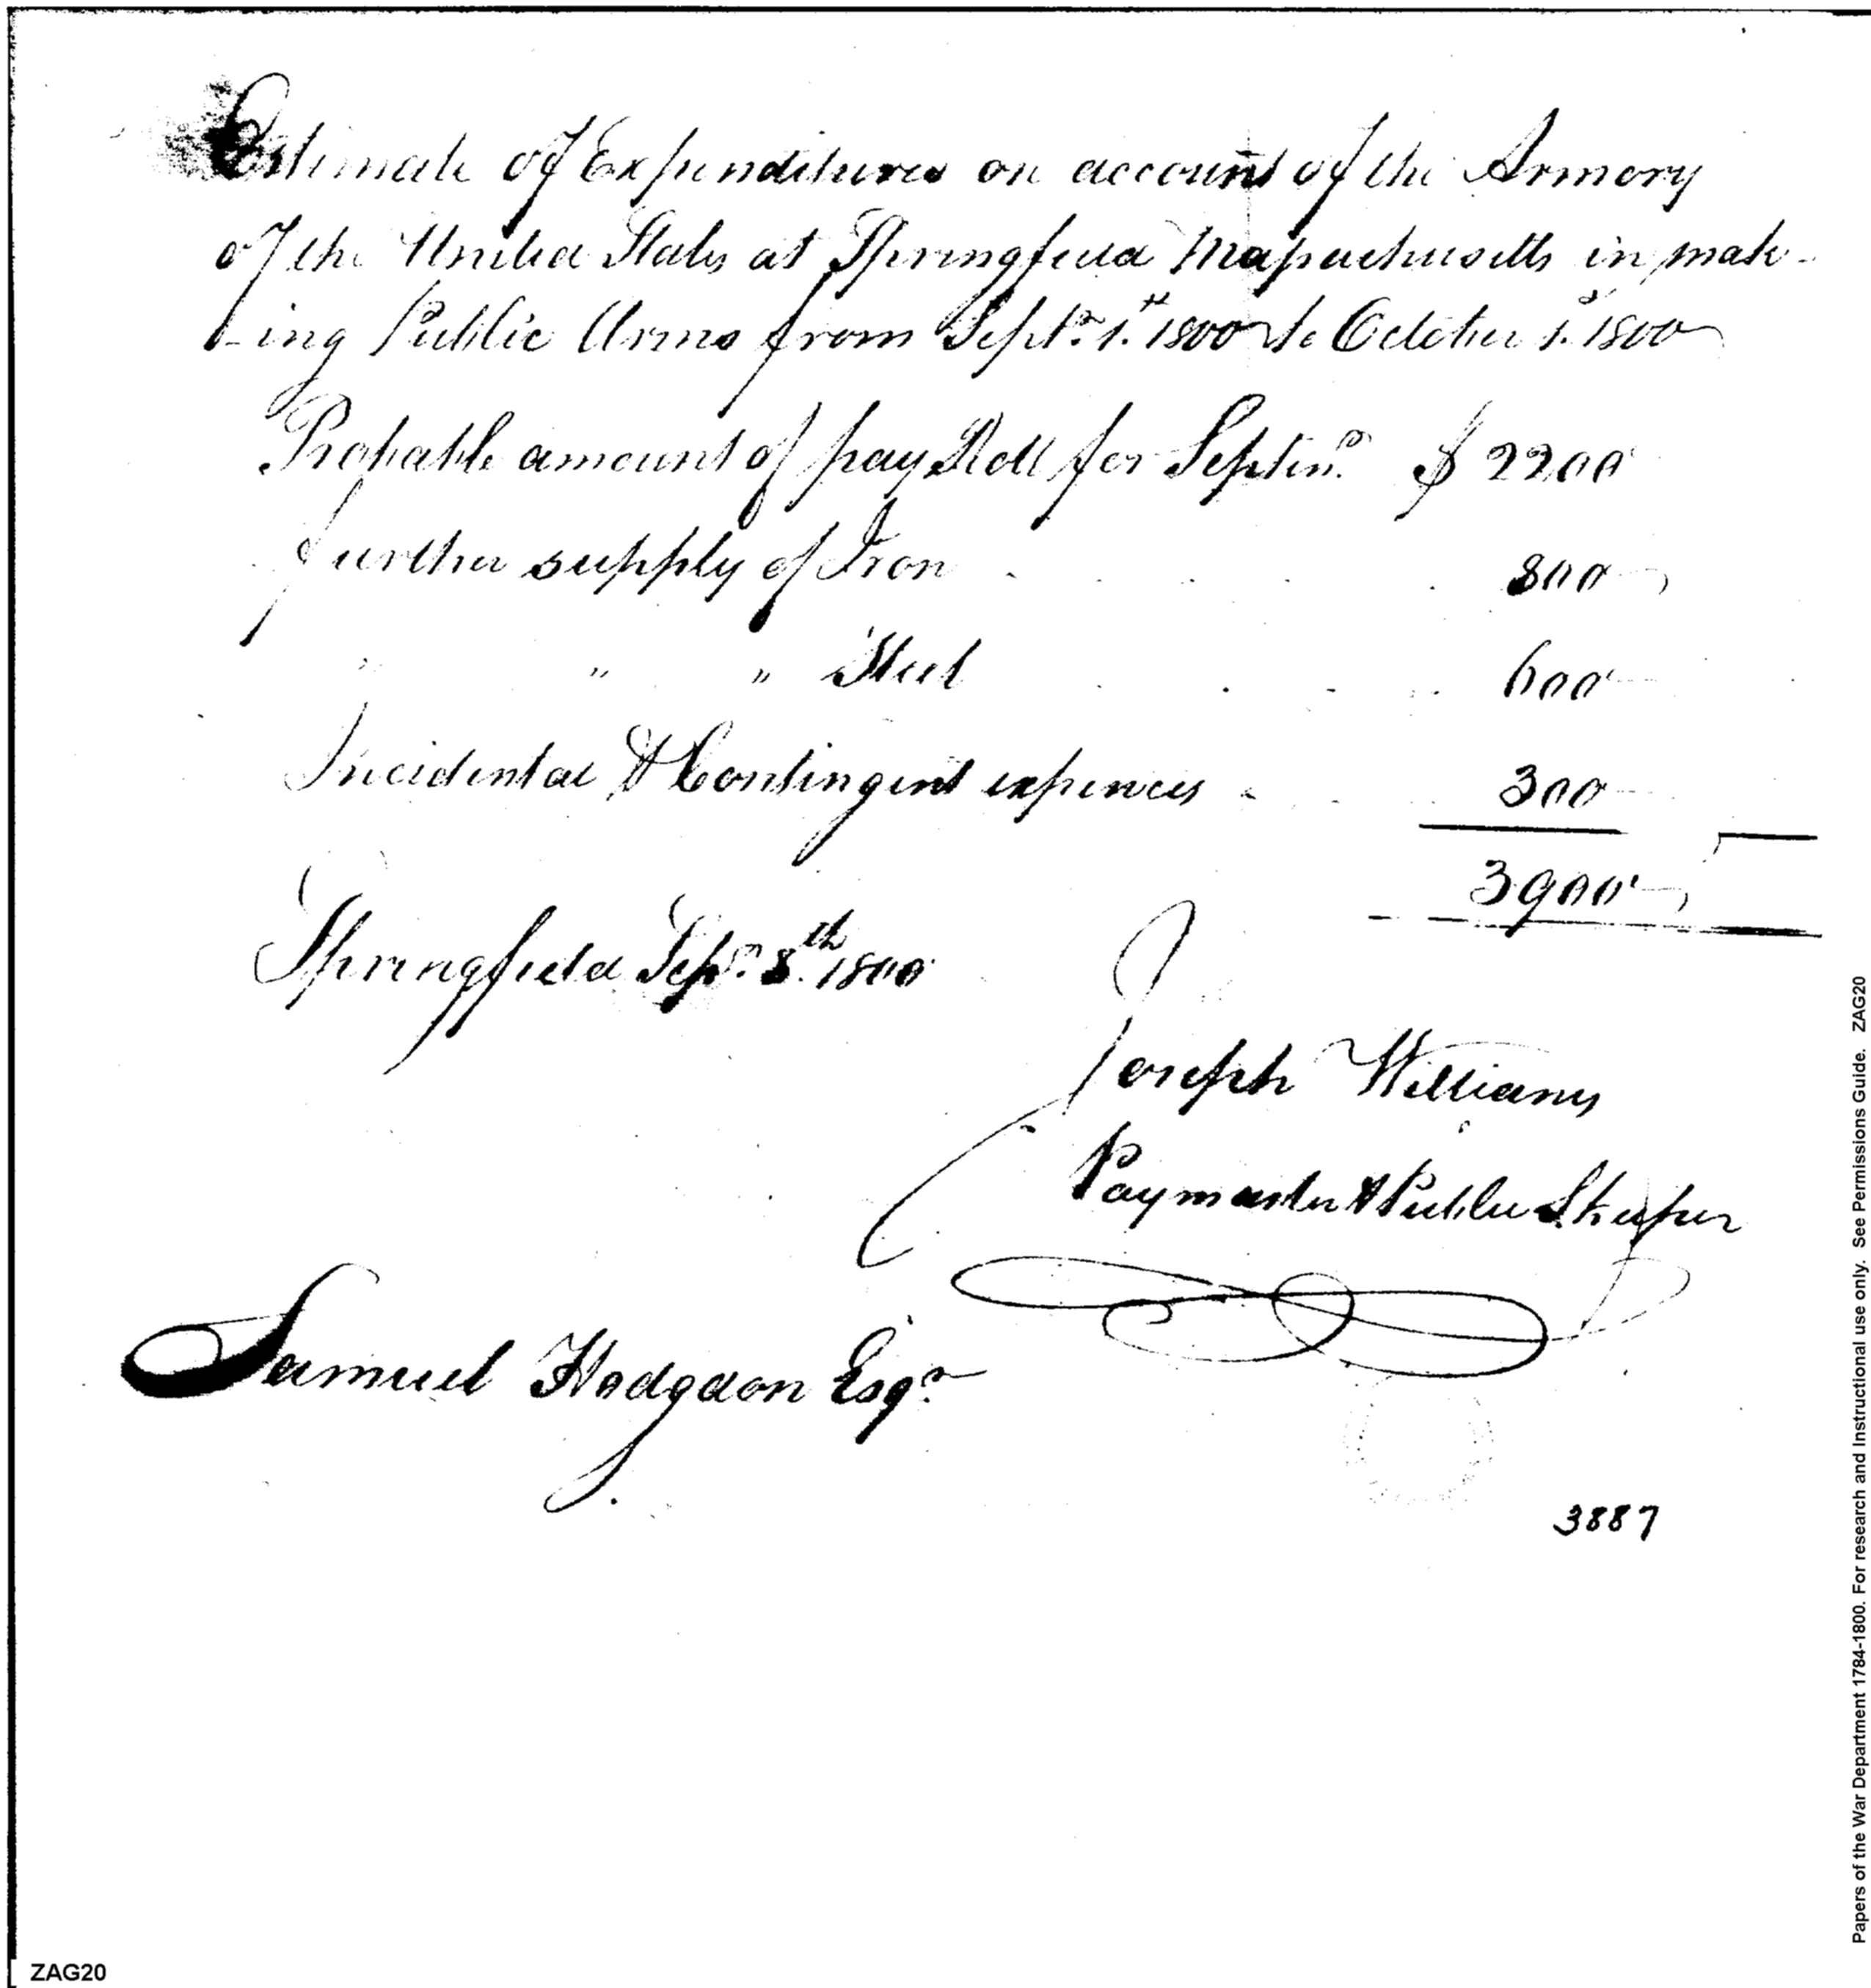 Estimate of Expenditures on account of the Armory
of the United States at Springfield Massachusetts in mak-
-ing Public Arms from Sepr. 1st. 1800 to October 1st. 1800
Probable amount of pay Roll for Septemr. $ 2200
further supply of Iron . . . . 800
" " " Steel . . . . 600
Incidental & Contingent expences . . . 300
3900
Springfield Sepr. 8th. 1800
Joseph Williams
Paymaster & Public S.keeper
Samuel Hodgdon Esqr.
3887
ZAG20
Papers of the War Department 1784-1800. For research and Instructional use only. See Permissions Guide. ZAG20